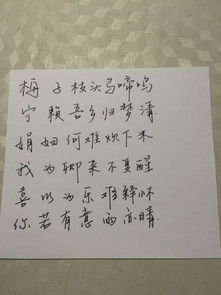 梅子枝头鸟啼鸣
宁赖吾乡归梦清
娟妞何难炊下米
我为聊来不复醒
喜以为乐难释怀
你若有意雨亦晴